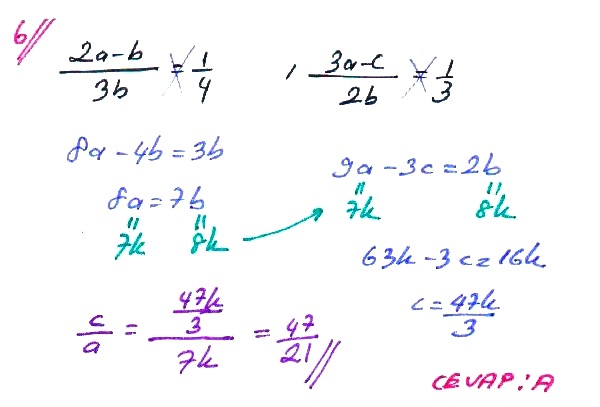 6//
(2a-b)/(3b) = 1/4 , (3a-c)/(2b) = 1/3
8a - 4b = 3b
8a = 7b
7k 8k
9a - 3c = 2b
7k 8k
63k - 3c = 16k
c = 47k/3
c/a = (47k/3)/(7k) = 47/21 //
CEVAP: A